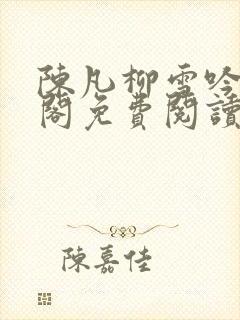 陳凡柳雪吟
閣免費閱讀
陳嘉佳